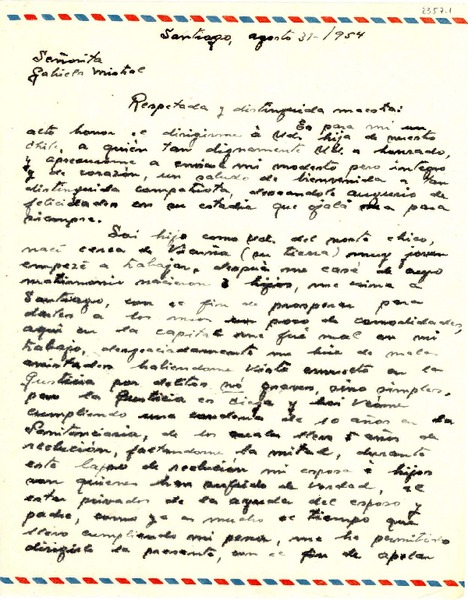 2357.1
Santiago, agosto 31-/1954
Señorita
Gabriela Mistral
Respetada y distinguida maestra:
Es para mi un
alto honor el dirigirme á Ud. hija de nuestro
Chile, a quien tan dignamente Ud. a honrado,
y apresurarme a enviarle mi modesto pero integro
y de corazón, un saludo de bienvenida a tan
distinguida compatriota, deseandole augurio de
felicidades en su estadia que ojalá sea para
siempre.
Soi hijo como Ud. del norte chico,
nací cerca de Vicuña (su tierra) muy joven
empezé a trabajar, despúes me casé de cuyo
matrimonio nacieron 3 hijos, me vine a
Santiago, con el fin de prosperar para
darles a los mios un poco de comodidades,
aqui en la capital me fué mal en mi
trabajo, desgraciadamente me hice de malas
amistades habiendome visto envuelto en la
Justicia por delitos nó graves, sino simples,
pero la Justicia es ciega y hoi véome
cumpliendo una condena de 10 años en la
Penitenciaria, de los cuales llevo 5 años de
reclución, faltandome la mitad, durante
este lapso de reclución mi esposa é hijos
son quienes han sufrido de verdad, al
estar privados de la ayuda del esposo y
padre, como ya es mucho el tiempo que
llevo cumpliendo mi pena, me he permitido
dirigirle la presente, con el fin de apelar